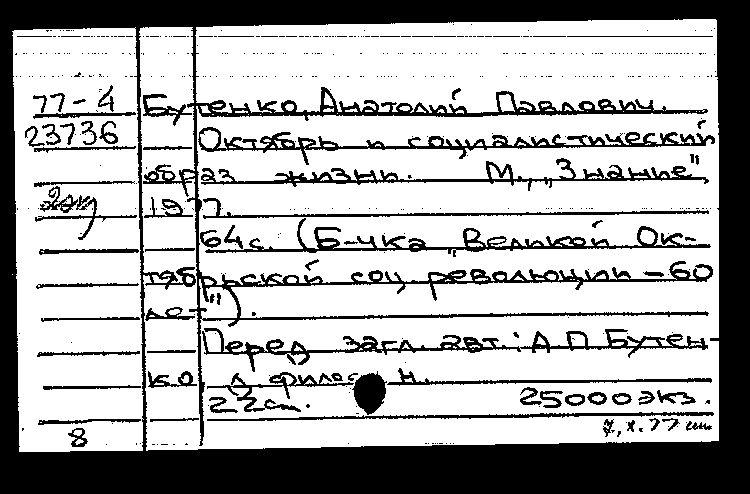 77-4 Бутенко, Анатолий Павлович.
23736 Октябрь и социалистический
образ жизни. М., „Знание",
2эк 1977.
64с. (Б-чка „Великой Ок-
тябрьской соц. революции – 60
лет").
Перед загл. авт.: А.П. Бутен-
ко, д. филос. н.
22см. 25000экз.
8